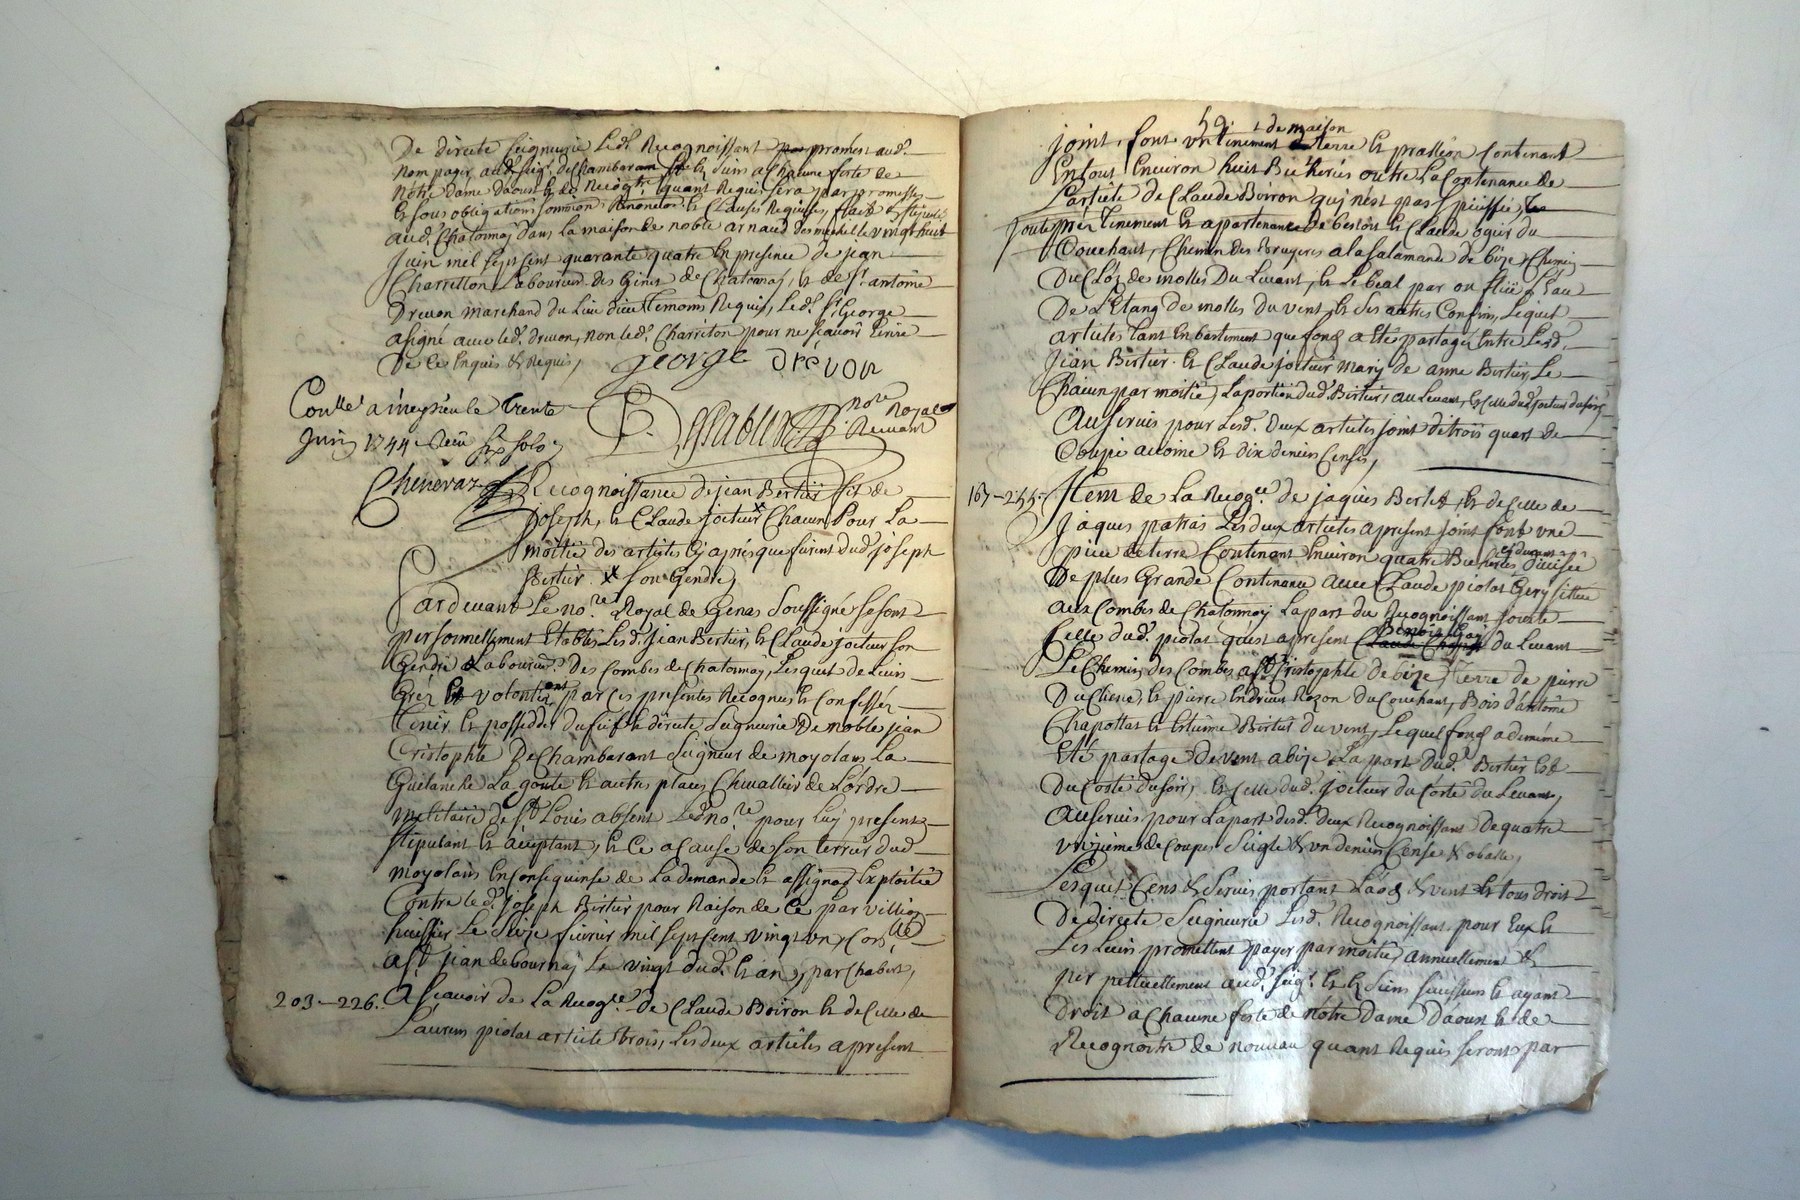 De directe seigneurie led. Recognoissant promest aud.
nom payer aud. seig. de Chambaram et es siens a Chacune feste de
Notre Dame daoust et de Recogtre quant Requis sera par promesse
et sous obligations soumion Renoncion et Clauses Requises, fait et
aud. Chatonnay dans la maison de noble arnaud vingt huit
Juin mil sept cent quarante quatre en presence de jean
Charretton Laboureur des Ginet de Chatonnay, et de sr. antoine
Drevon marchand du Lieu dieu temoins Requis, led. sr. George
a signé avec led. drevon, non led. Charreton pour ne scavoir Ecrire
De ce Enquis & Requis,
george drévon
Conlle. a meyrieu le trente
Juin 1744 Receu six sols
notre Royal
Recevant
Cheneraz
Recognoissance de jean Bertier fils de
joseph, et Claude jocteur x Chacun Pour La
moitié des articles Cy aprés que furent dud. joseph
Bertier. x son Gendre,
Pardevant Le nore. Royal de Genas soussigné se sont
personnellement Etablis Lesd. jean Bertier, et Claude jocteur son
Gendre Laboureurs Des Combes de Chatonnay, Lesquels de Leurs
Gréz et volontés ont par Ces presentes Recognus et Confessér
tenir et posseder du fief et directe seigneurie De noble jean
Cristophle De Chambarant seigneur de moyolans, La
La goute et autres places Chevallier de L'ordre
militaire De St. Louis absent Led. nore. pour Luy present
stipulant et acceptant, et Ce a Cause de son terrier dud.
moyolans En Consequense de La demande et assignaõn Exploitée
Contre led. joseph Bertier pour Raison de Ce par villion
huissier Le seize fevrier mil sept cent vingt un, Conlé
a st. jean de bournay Le vingt dud. et an, par Chabert,
203-226. A scavoir de La Recogce. De Claude Boiron et de Celle de
Laurens piolat article trois, Les deux articles a present
59.
joint, sont un tenement de maison terre et en Contenant
En tout Environ huit Bicherées outre La Contenance de
L'article de Claude Boiron qui n'est pas
jouste tenement et apartenance de et Claude ogier du
Couchant, Chemin des bruyeres a la salamande de bize, Chemin
Du Cloz des molles Du Levant, et Le beal par ou fluë L'eau
De L'Etang de molles du vent, et ses autres Confins, Lequel
article tant En bastiment que fond a Eté partagé Entre Lesd.
Jean Bertier et Claude joctieur mary de anne Bertier, Le
Chacun par moitié, La portion dud. Bertier, au Levant, et celle dud. joctieur du soir,
Au servis pour Lesd. Deux articles joint de trois quart de
Coupe avoine et dix deniers Censes,
167-255. Item de La Recogce. de jaques Berlet, et de Celle de
Jaques patras Les deux articles a present joint sont une
piece de terre Contenant Environ quatre Bicherées cy devant divisée
De plus Grande Contenance avec Claude piolat Gery située
aux Combes de Chatonnay La part du Recognoissant jouste
Celle dud. piolat qu'est apresent Benoit du Levant
Le Chemin des Combes a st. Cristophle de bize, terre de pierre
Du et pierre Endrieu Rozon du Couchant, Bois d'antoine
Chapottat et Estienne Bertier du vent, Lequel fond a de mème
Eté partagé De vent a bize La part Dud. Bertier Est
Du Costé du soir, et Celle dud. joctieur du Costé du Levant,
Au servis pour La part desd. Deux Recognoissant De quatre
de Coupe, seigle & un denier Cense & obolle,
Lesquel Cens & servis portant Laods & vent et tous droit
De directe seigneurie Lesd. Recognoissant pour Eux et
Les Leurs promettent payer par moitié annuellement &
perpettuellement aud. seigr. et es siens successeurs et ayant
droit a Chacune feste de nôtre Dame Daoust et de
Recognoitre de nouveau quant Requis seront par